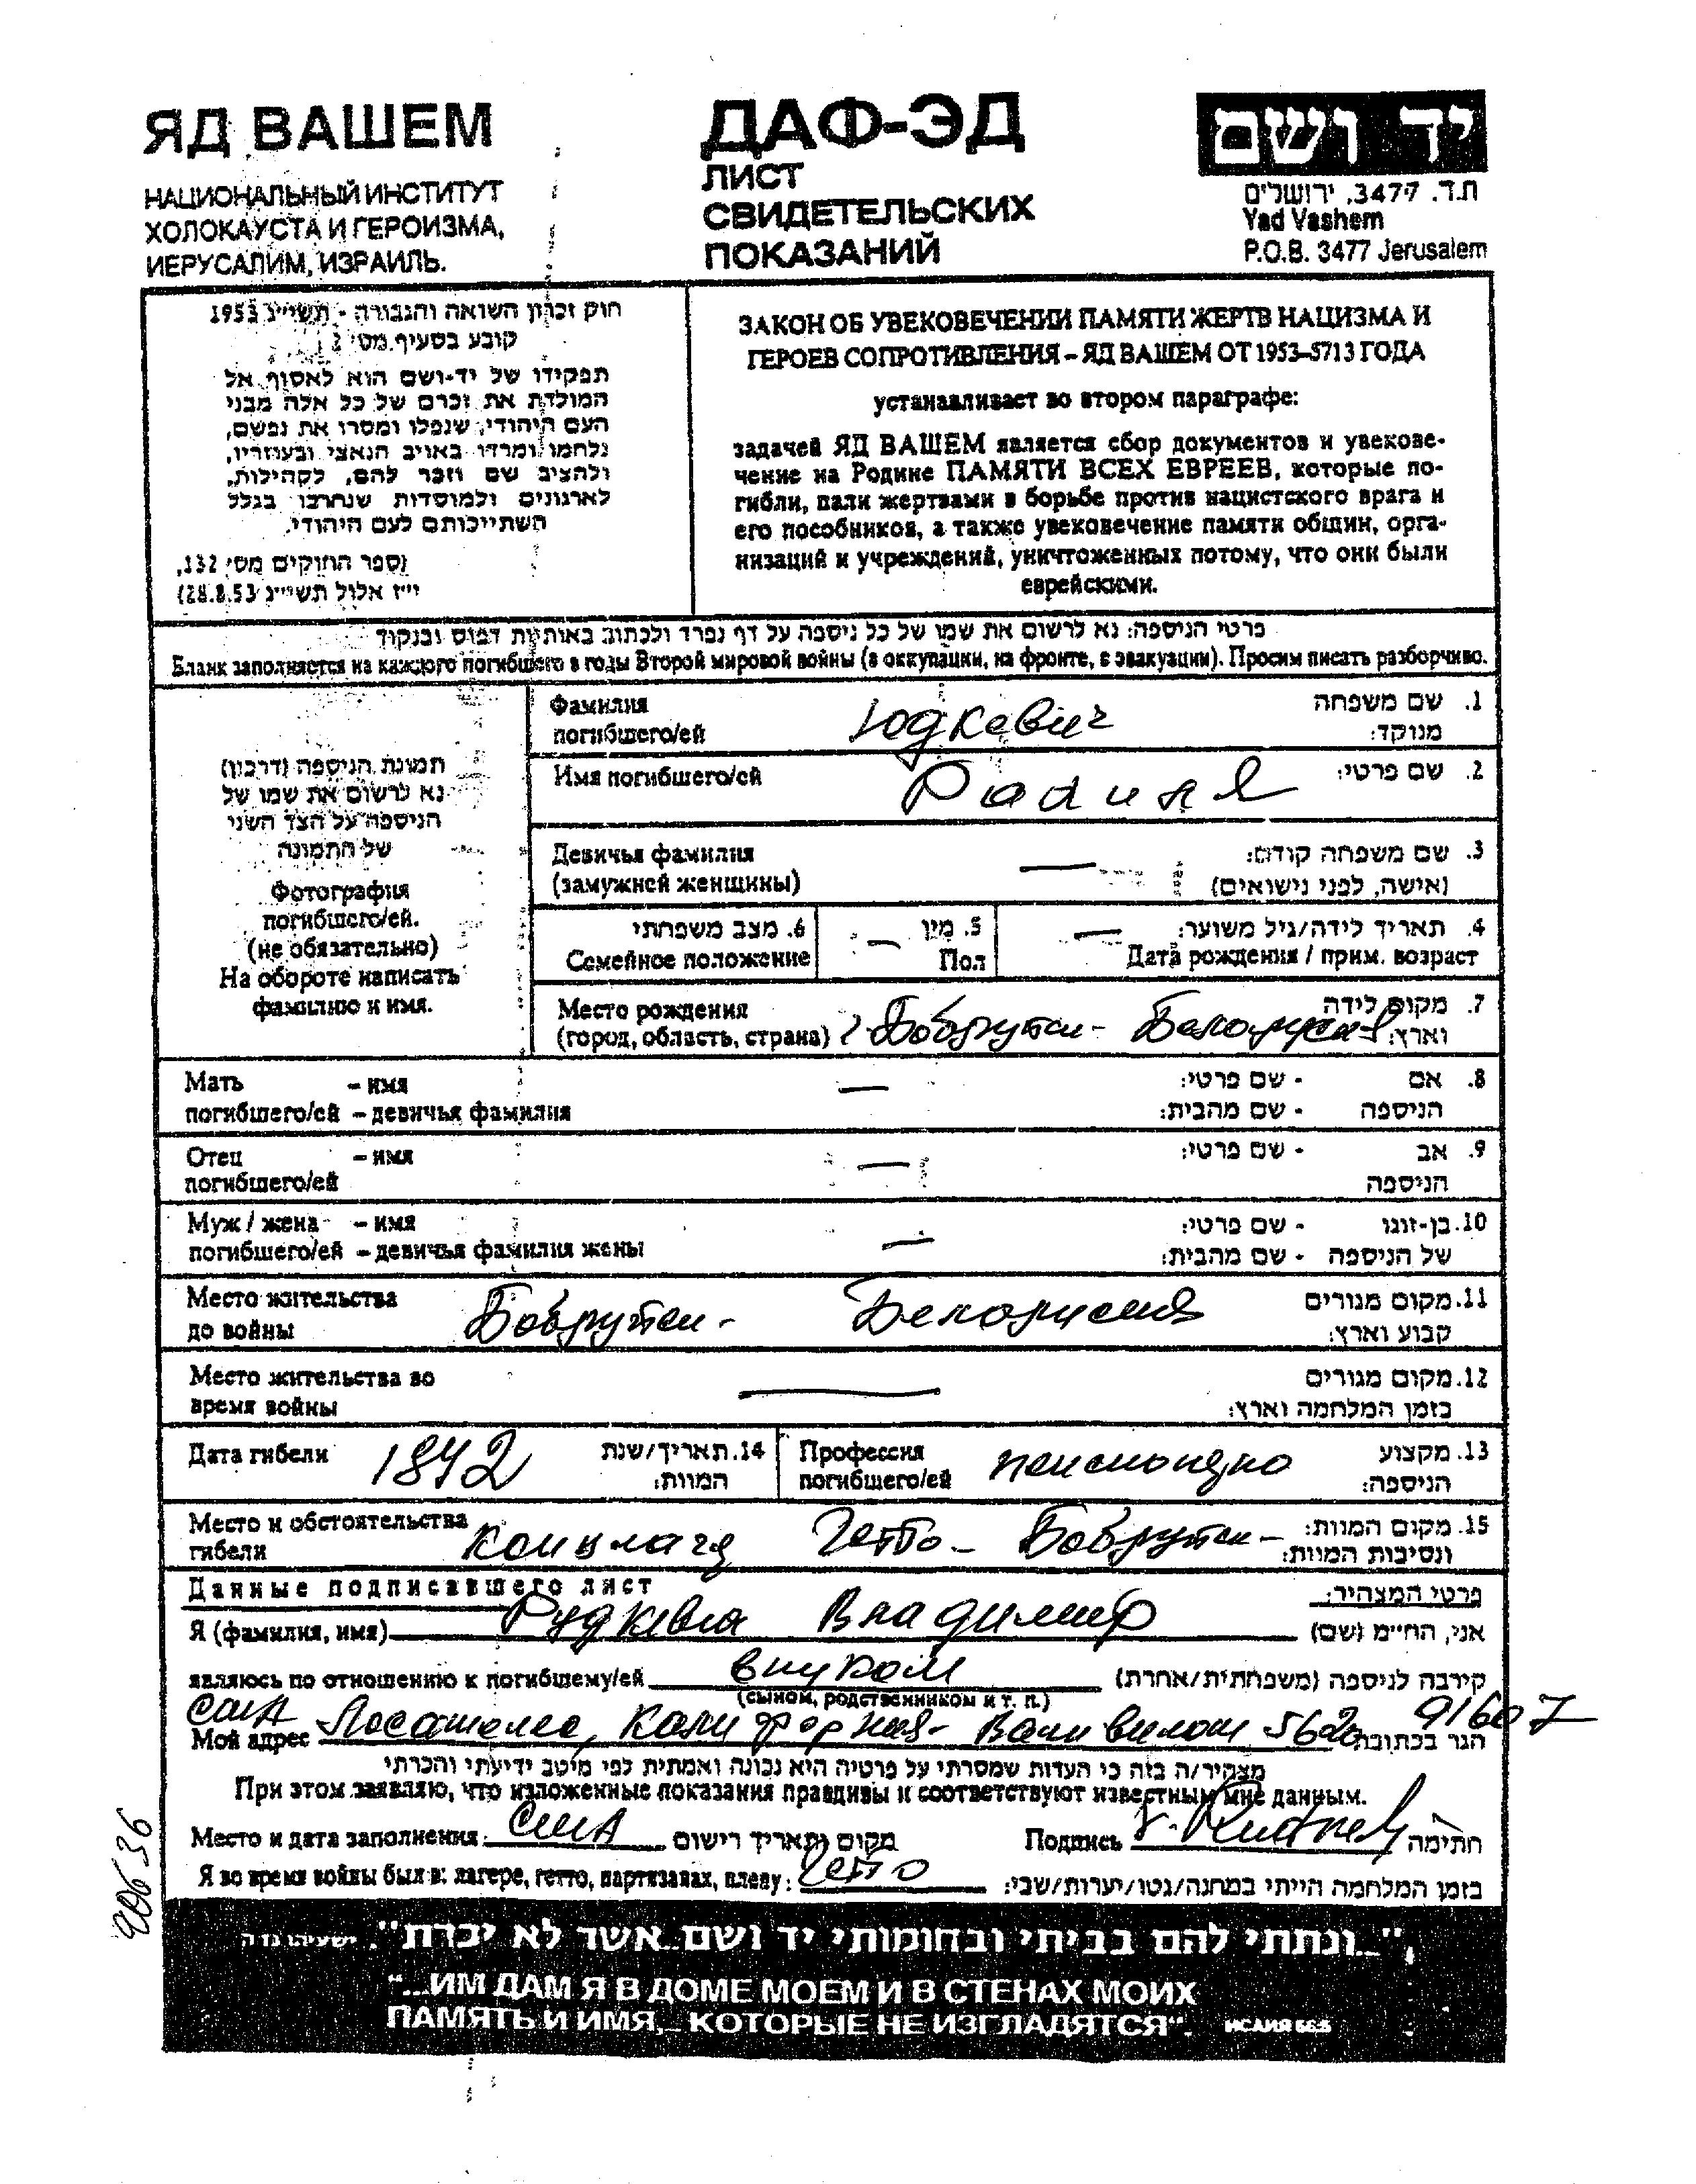 ЯД ВАШЕМ
НАЦИОНАЛЬНЫЙ ИНСТИТУТ
ХОЛОКАУСТА И ГЕРОИЗМА,
ИЕРУСАЛИМ, ИЗРАИЛЬ.
ДАФ-ЭД
ЛИСТ
СВИДЕТЕЛЬСКИХ
ПОКАЗАНИЙ
יד ושם
ת.ד. 3477, ירושלים
Yad Vashem
P.O.B. 3477 Jerusalem
חוק זכרון השואה והגבורה - תשי״ג 1953
קובע בסעיף מס׳ 2
תפקידו של יד-ושם הוא לאסוף אל
המולדת את זכרם של כל אלה מבני
העם היהודי, שנפלו ומסרו את נפשם,
נלחמו ומרדו באויב הנאצי ובעוזריו,
ולהציב שם וזכר להם, לקהילות,
לארגונים ולמוסדות שנחרבו בגלל
השתייכותם לעם היהודי.
(ספר החוקים מס׳ 132,
י״ז אלול תשי״ג 28.8.53)
ЗАКОН ОБ УВЕКОВЕЧЕНИИ ПАМЯТИ ЖЕРТВ НАЦИЗМА И
ГЕРОЕВ СОПРОТИВЛЕНИЯ – ЯД ВАШЕМ ОТ 1953–5713 ГОДА
устанавливает во втором параграфе:
задачей ЯД ВАШЕМ является сбор документов и увекове-
чение на Родине ПАМЯТИ ВСЕХ ЕВРЕЕВ, которые по-
гибли, пали жертвами в борьбе против нацистского врага и
его пособников, а также увековечение памяти общин, орга-
низаций и учреждений, уничтоженных потому, что они были
еврейскими.
פרטי הניספה: נא לרשום את שמו של כל ניספה על דף נפרד ולכתוב באותיות דפוס ובנקוד
Бланк заполняется на каждого погибшего в годы Второй мировой войны (в оккупации, на фронте, в эвакуации). Просим писать разборчиво.
תמונת הניספה (דרכון)
נא לרשום את שמו של
הניספה על הצד השני
של התמונה
Фотография
погибшего/ей.
(не обязательно)
На обороте написать
фамилию и имя.
Фамилия Юдкевич 1. שם משפחה
погибшего/ей מנוקד:
Имя погибшего/ей 2. שם פרטי:
Девичья фамилия — 3. שם משפחה קודם:
(замужней женщины) (אישה, לפני נישואים)
6. מצב משפחתי — 5. מין — 4. תאריך לידה/גיל משוער:
Семейное положение Пол Дата рождения / прим. возраст
Место рождения 7. מקום לידה
(город, область, страна) г Бобруйск - Белоруссия וארץ:
Мать – имя — - שם פרטי: 8. אם
погибшего/ей – девичья фамилия - שם מהבית: הניספה
Отец – имя — - שם פרטי: 9. אב
погибшего/ей הניספה
Муж / жена – имя — - שם פרטי: 10. בן-זוגו
погибшего/ей – девичья фамилия жены - שם מהבית: של הניספה
Место жительства Бобруйск - Белоруссия 11. מקום מגורים
до войны קבוע וארץ:
Место жительства во — 12. מקום מגורים
время войны בזמן המלחמה וארץ:
Дата гибели 1942 14. תאריך/שנת Профессия 13. מקצוע
המוות: погибшего/ей הניספה:
Место и обстоятельства Концлаг Гетто - Бобруйск - 15. מקום המוות:
гибели ונסיבות המוות:
Данные подписавшего лист פרטי המצהיר:
Я (фамилия, имя) Рудкевич Владимир אני, החי״מ (שם)
являюсь по отношению к погибшему/ей внуком קירבה לניספה (משפחתית/אחרת)
(сыном, родственником и т. п.)
США 91607
Мой адрес Лосанжелес, Калифорния - 5620 הגר בכתובת
מצהיר/ה בזה כי העדות שמסרתי על פרטיה היא נכונה ואמתית לפי מיטב ידיעתי והכרתי
При этом заявляю, что изложенные показания правдивы и соответствуют известным мне данным.
Место и дата заполнения: США מקום ותאריך רישום Подпись חתימה
Я во время войны был в: лагере, гетто, партизанах, плену: Гетто בזמן המלחמה הייתי במחנה/גטו/יערות/שבי:
"...ונתתי להם בביתי ובחומותי יד ושם...אשר לא יכרת". ישעיהו נו ה
"...ИМ ДАМ Я В ДОМЕ МОЕМ И В СТЕНАХ МОИХ
ПАМЯТЬ И ИМЯ,... КОТОРЫЕ НЕ ИЗГЛАДЯТСЯ". ИСАИЯ 56:5